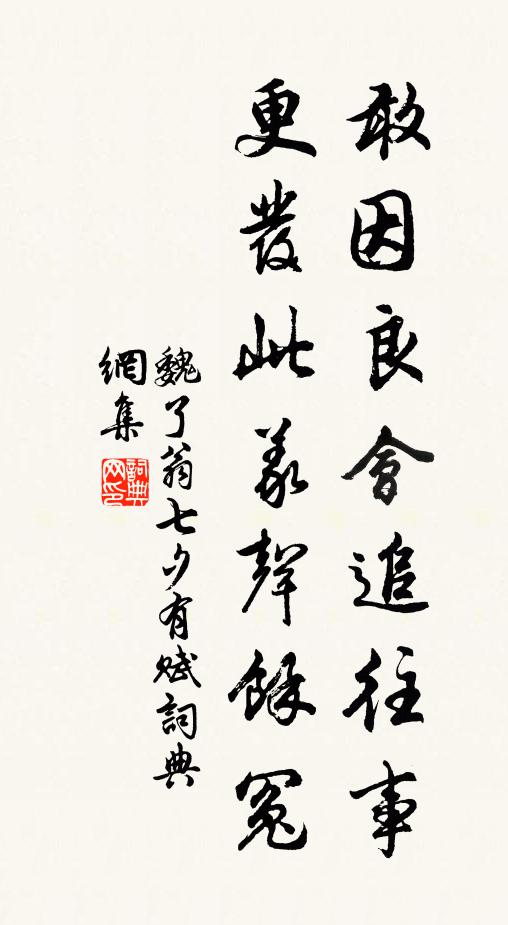 敢因良會追往事
更發此義聲餘冤
魏了翁七夕有賦詞典
網集
詞典
网印